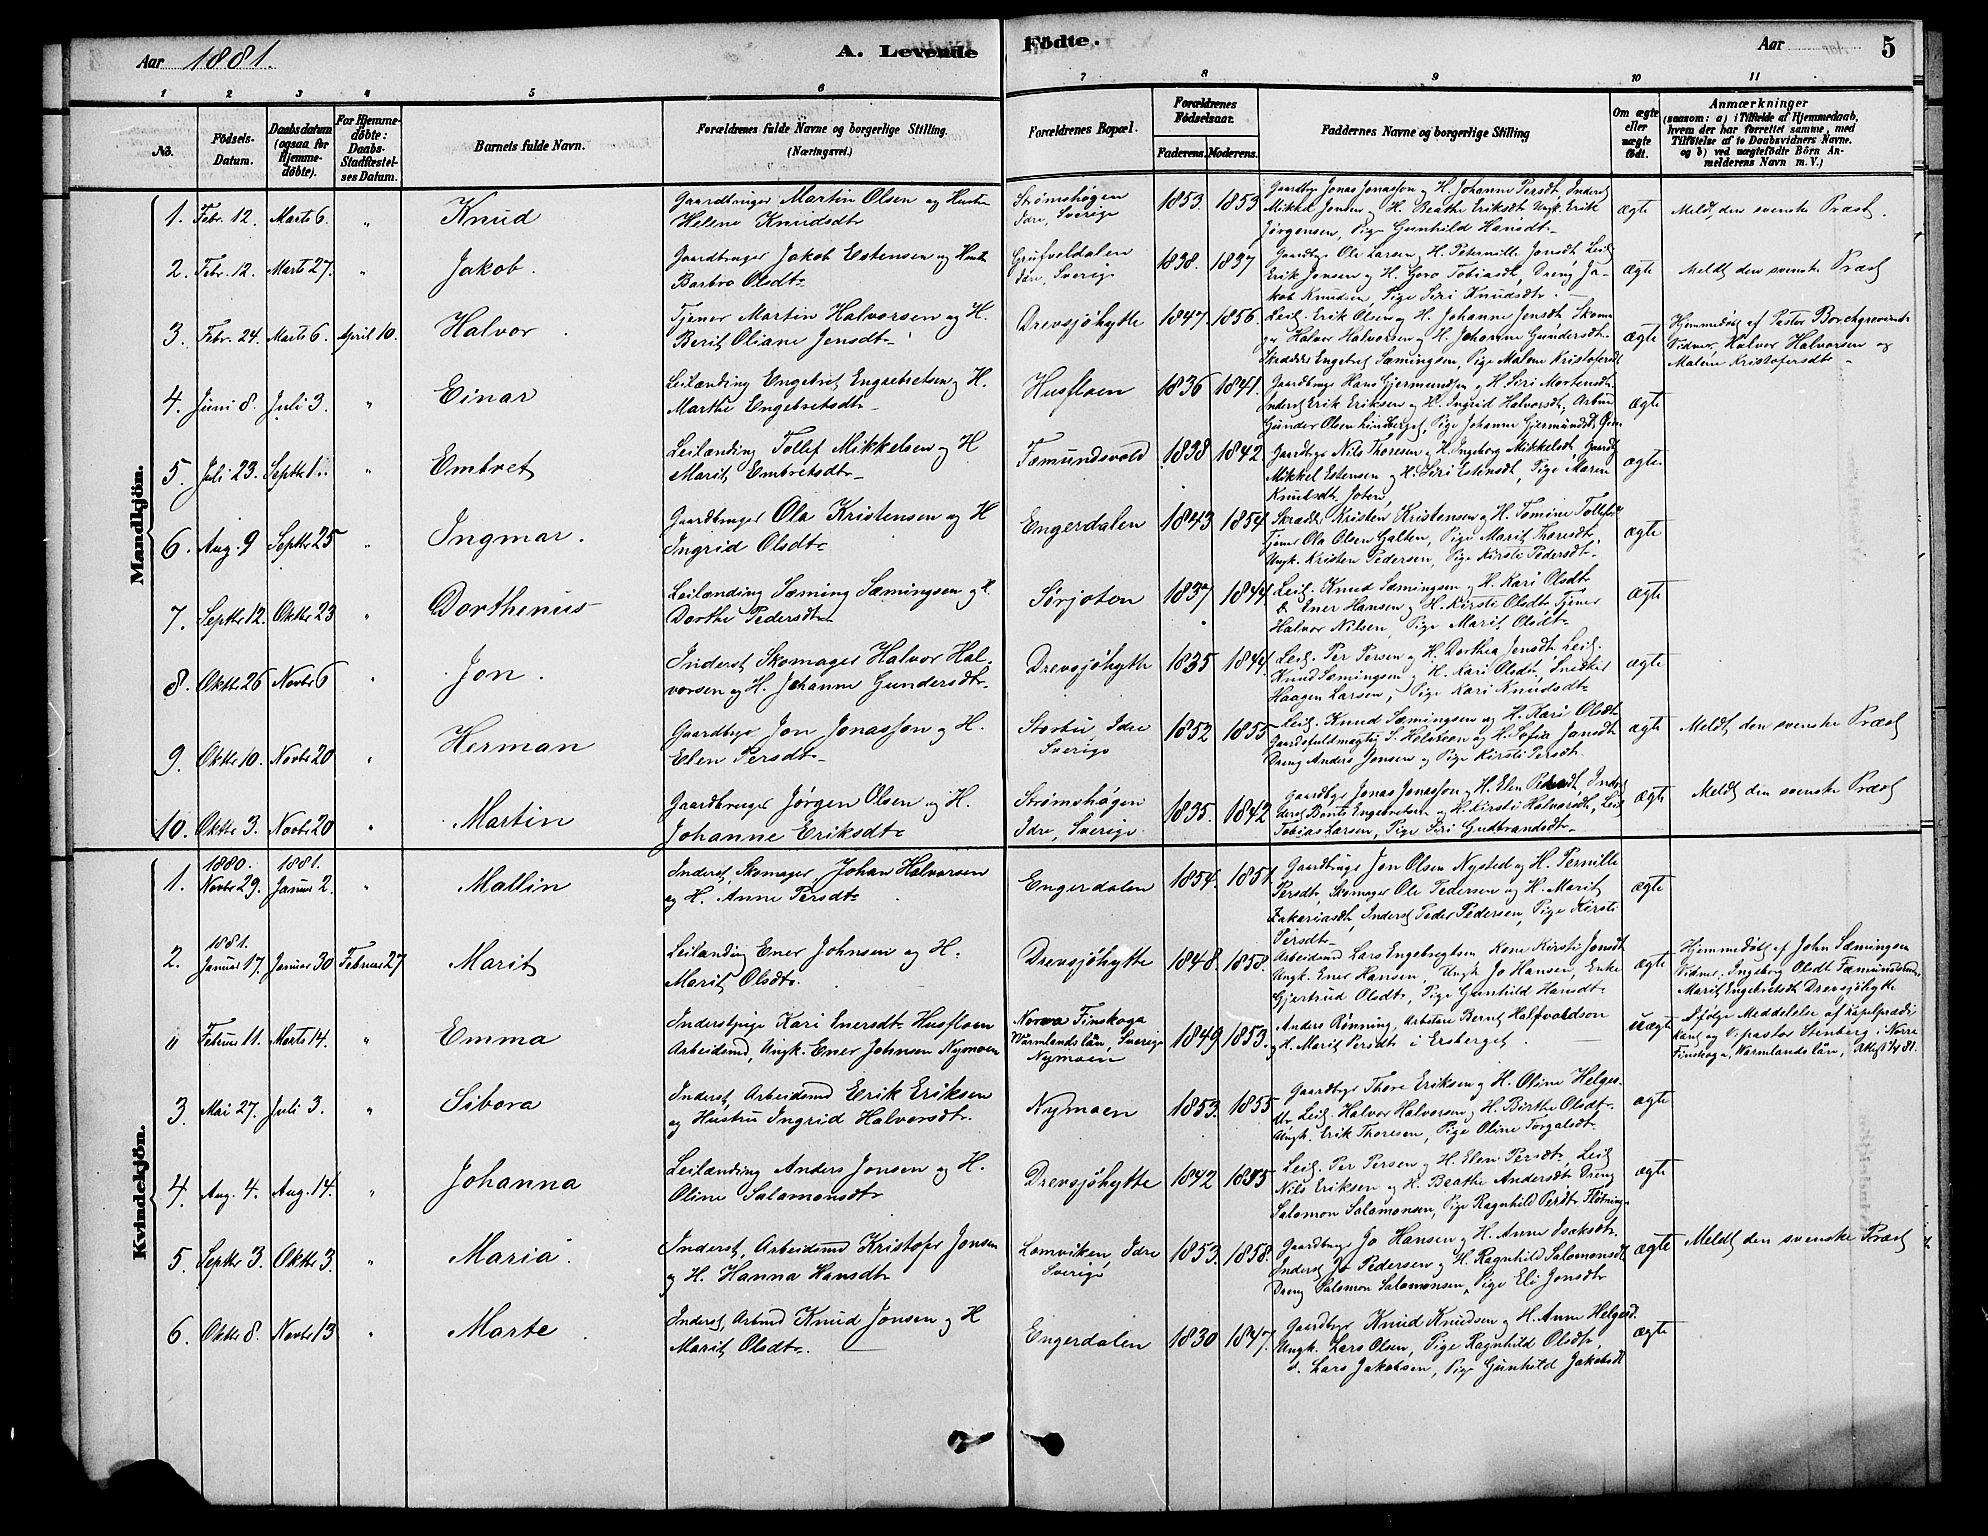 Aar 1881.
A. Levende Födte.
Aar
5
1 2 3 4 5 6 7 8 9 10 11
No.
Födsels-Datum.
Daabsdatum (ogsaa for Hjemmedöbte).
For Hjemmedöbte: Daabs-Stadfæstelses Datum.
Barnets fulde Navn.
Forældrenes fulde Navne og borgerlige Stilling.
(Næringsvei.)
Forældrenes Bopæl.
Forældrenes Födselsaar.
Faderens. Moderens.
Faddernes Navne og borgerlige Stilling
Om ægte eller uægte født.
Anmærkninger
(saasom: a) i Tilfælde af Hjemmedaab, hvem der har forrettet samme, med Tilføielse af to Daabsvidners Navne. og b) ved uægtefödte Börn Anmelderens Navn m. V.)
Mandkjön.
1. Febr. 12. Marts 6. " Knud
Gaardbruger Martin Olsen og Hustru
Helene Knudsdtr
Strømshøgen
Idre, Sverige
1853. 1853
Gaardbrgr Jonas Jonasson og H. Johanne Persdt, Inderst
Mikkel Jonsen og H. Beathe Eriksdt, Ungk. Erik
Jørgensen, Pige Gunhild Hansdt
ægte
Meldt den svenske Præst.
2. Febr. 12. Marts 27. " Jakob.
Gaardbruger Jakob Estensen og Hustr
Barbro Olsdtr
Grufveldalen
Idre, Sverige
1838. 1837
Gaardbrgr Ole Larsen og H. Pernille Jonsdt, Leil.
Erik Jonsen og H. Goro Tobiasdt, Dreng Ja-
kob Knudsen, Pige Siri Knudsdtr.
ægte
Meldt den svenske Præst
3. Febr. 24. Marts 6. April 10. Halvor
Tjener Martin Halvorsen og H.
Berit Oliane Jensdtr
Drevsjøhytte
1847. 1856.
Leil. Erik Olsen og H. Johanne Jensdt, Skoma
ger Halvor Halvorsen og H. Johanne Gundersdtr
Skrædder Engebret Sæmingsen, Pige Malene Kristofersdt
ægte
Hjemmedøbt af Pastor Borchgrevink
Vidner, Halvor Halvorsen og
Malene Kristofersdtr
4. Juni 8. Juli 3. " Einar
Leilænding Engebret Engebretsen og H.
Marthe Engebretsdtr
Husfloen
1836 1841.
Gaardbrgr Hans Gjermundsen og H. Siri Mortensdtr
Inderst Erik Eriksen og H. Ingrid Halvorsdt, Arbmd
Gunder Olsen Lindberget, Pige Johanne Gjermundsdt
ægte
5. Juli 23. Septbr 1. " Embret
Leilænding Tollef Mikkelsen og H
Marit Embretsdtr
Fæmundsvold
1838 1842
Gaardbrgr Nils Thoresen og H. Ingeborg Mikkelsdt, Gaardb
Mikkel Estensen og H. Siri Estensdt, Pige Maren
Knudsdt Joten
ægte
6. Aug. 9 Septbr 25 " Ingmar.
Gaardbruger Ola Kristensen og H
Ingrid Olsdtr
Engerdalen
1843 1854
Skrædder Kristen Kristensen og H. Tomine Tollefsdt
Tjener Ola Olsen Galten, Pige Marit Thoresdtr,
Ungk. Kristen Pedersen, Pige Kirsti Pedersdtr
ægte
7. Septbr 12. Oktbr 23 " Dorthenus
Leilænding Sæming Sæmingsen og H.
Dorthe Pedersdtr
Sørjoten
1837 1844.
Leil. Knud Sæmingsen og H. Kari Olsdtr
Ener Hansen og H. Kirsti Olsdtr, Tjener
Halvor Nilsen, Pige Marit Olsdtr
ægte
8. Oktbr 26 Novbr 6 " Jon.
Inderst, Skomager Halvor Hal-
vorsen og H. Johanne Gundersdtr
Drevsjøhytte
1835 1844.
Leil. Per Persen og H. Dorthea Jensdt, Leil.
Knud Sæmingsen og H. Kari Olsdt, Snedker
Haagen Larsen, Pige Kari Knudsdtr
ægte
9. Oktbr 10. Novbr 20 " Herman
Gaardbrgr Jon Jonasson og H.
Elen Persdtr
Storbu, Idre
Sverige
1852 1855
Leil. Knud Sæmingsen og H. Kari Olsdt
Gaardsfuldmægtig S. og H. Sofia Jansdt
Dreng Anders Jonsen og Pige Kirsti Persdt
ægte
Meldt den svenske Præst
10. Oktbr 3. Novbr 20 " Martin
Gaardbruger Jørgen Olsen og H.
Johanne Eriksdtr
Strømshøgen
Idre, Sverige
1835. 1842
Gaardbrgr Jonas Jonasson og H. Elen Persdt, Ind
erst Bent Engebretsen og H. Kirsti Halvorsdt, Leil
Tobias Larsen, Pige Siri Gudbrandsdt
ægte
Meldt den svenske Præst
Kvindekjön.
1. 1880. Novbr 29. 1881. Januar 2. " Mallin
Inderst, Skomager Johan Halvorsen
og H. Anne Persdtr
Engerdalen
1854. 1851.
Gaardbrgr Jon Olsen Nysted og H. Pernille
Persdt, Skomager Ole Pedersen og H. Marit
Zakariasdt, Inderst Peder Pedersen, Pige Kirsti
Persdtr
ægte
2. 1881. Januar 17. Januar 30 Februar 27 Marit
Leilænding Ener Johnsen og H.
Marit Olsdtr.
Drevsjøhytte
1848. 1858.
Arbeidsmd Lars Engebregtsen Kone Kirsti Jonsdt
Ungk. Ener Hansen, Ungk Jo Hansen, Enke
Gjertrud Olsdt, Pige Gunhild Hansdt
ægte
Hjemmedøbt af John Sæmingsen
Vidner, Ingeborg Olsdt Fæmundsenden
Marit Engebretsdt Drevsjøhytte
" Februar 11. Marts 14. " Emma
Inderstpige Kari Enersdtr Husfloen
Arbeidsmd, Ungk. Ener Johnsen Nymoen
Norra Finskoga
Värmlandslän, Sverige
Nymoen
1849 1853.
Anders Rønning, Arbetare Bernt Halfvordson
og H. Marit Persdtr i Ersberget.
uægte
Ifølge Meddelelse af Kapelprædi
kant og V. pastor Stenberg i Norre
Finskoga, Warmlandslän,
3 Mai 27. Juli 3. " Sibora
Inderst, Arbeidsmd Erik Eriksen
og Hustru Ingrid Halvorsdtr.
Nymoen
1853. 1855
Gaardbrgr Thore Eriksen og H. Oline Helges
dtr, Leil. Halvor Halvorsen og H. Birthe Olsdtr
Ungk. Erik Thoresen, Pige Oline Torgalsdtr
ægte
4. Aug. 4. Aug. 14. " Johanna
Leilænding Anders Jonsen og H.
Oline Salomonsdtr
Drevsjøhytte
1842 1855
Leil. Per Persen og H. Elen Persdtr, Leil
Nils Eriksen og H. Beathe Andersdt, Dreng
Salomon Salomonsen, Pige Ragnhild Persdtr Fløtning
ægte
5 Septbr 3. Oktbr 3. " Maria.
Inderst, Arbeidsmd Kristofer Jonsen
og H. Hanna Hansdtr
Lomviken, Idre
Sverige
1853. 1858.
Gaardbrgr Jo Hansen og H. Anne Isaksdtr
Inderst Jo Pedersen og H. Ragnhild Salomonsdt
Dreng Salomon Salomonsen, Pige Eli Jonsdtr
ægte
Meldt den svenske Præst
6. Oktbr 8. Novbr 13 " Marte
Inderst, Arbmd Knud Jonsen og H
Marit Olsdtr.
Engerdalen
1830 1847.
Gaardbrgr Knud Knudsen og H. Anne Helgesd.
Ungk. Lars Olsen, Pige Ragnhild Olsdtr
d. Lars Jakobsen, Pige Gunhild Jakobsdt
ægte